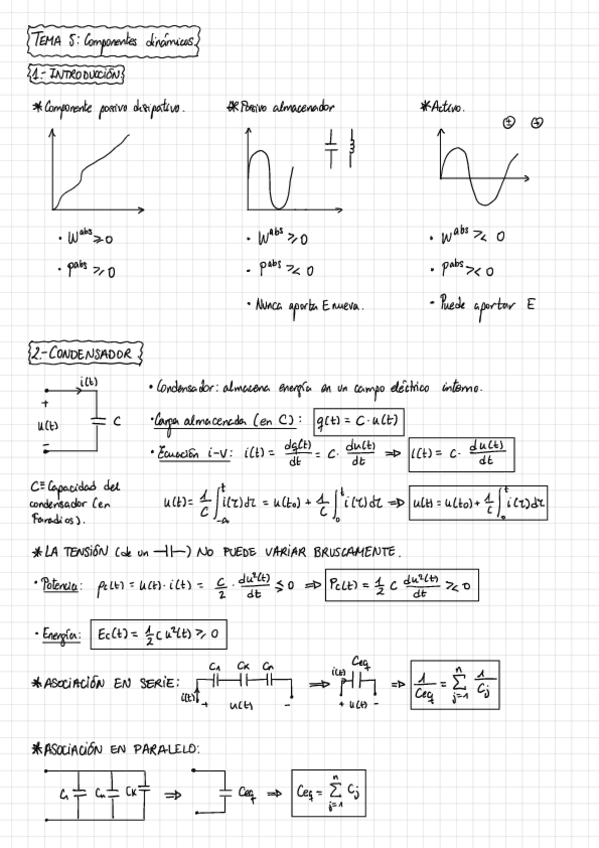 TEMA 5: Componentes dinámicos.
1.- INTRODUCCIÓN
*Componente pasivo disipativo. *Pasivo almacenador *Activo.
· Wabs ≥ 0 · Wabs ≥ 0 · Wabs ≷ 0
· Pabs ≥ 0 · Pabs ≷ 0 · Pabs ≷ 0
· Nunca aporta E nueva. · Puede aportar E
2.- CONDENSADOR
i(t)
+
u(t)
-
C
· Condensador: almacena energía en un campo eléctrico interno.
· Carga almacenada (en C): q(t) = C · u(t)
· Ecuación i-v: i(t) = dq(t)/dt = C · du(t)/dt ⇒ i(t) = C · du(t)/dt
C ≡ Capacidad del
condensador (en
Faradios).
u(t) = 1/C ∫_{-∞}^{t} i(τ)dτ = u(t0) + 1/C ∫_{0}^{t} i(τ)dτ ⇒ u(t) = u(t0) + 1/C ∫_{0}^{t} i(τ)dτ
*LA TENSIÓN (de un ⊣⊢) NO PUEDE VARIAR BRUSCAMENTE.
· Potencia: pc(t) = u(t) · i(t) = C/2 · du²(t)/dt ≶ 0 ⇒ Pc(t) = 1/2 C du²(t)/dt ≷ 0
· Energía: Ec(t) = 1/2 C u²(t) ≥ 0
*ASOCIACIÓN EN SERIE: C1 CK Cn i(t) + u(t) - ⇒ i(t) Ceq + u(t) - ⇒ 1/Ceq = Σ_{j=1}^{n} 1/Cj
*ASOCIACIÓN EN PARALELO:
C1 Cn CK ⇒ Ceq ⇒ Ceq = Σ_{j=1}^{n} Cj